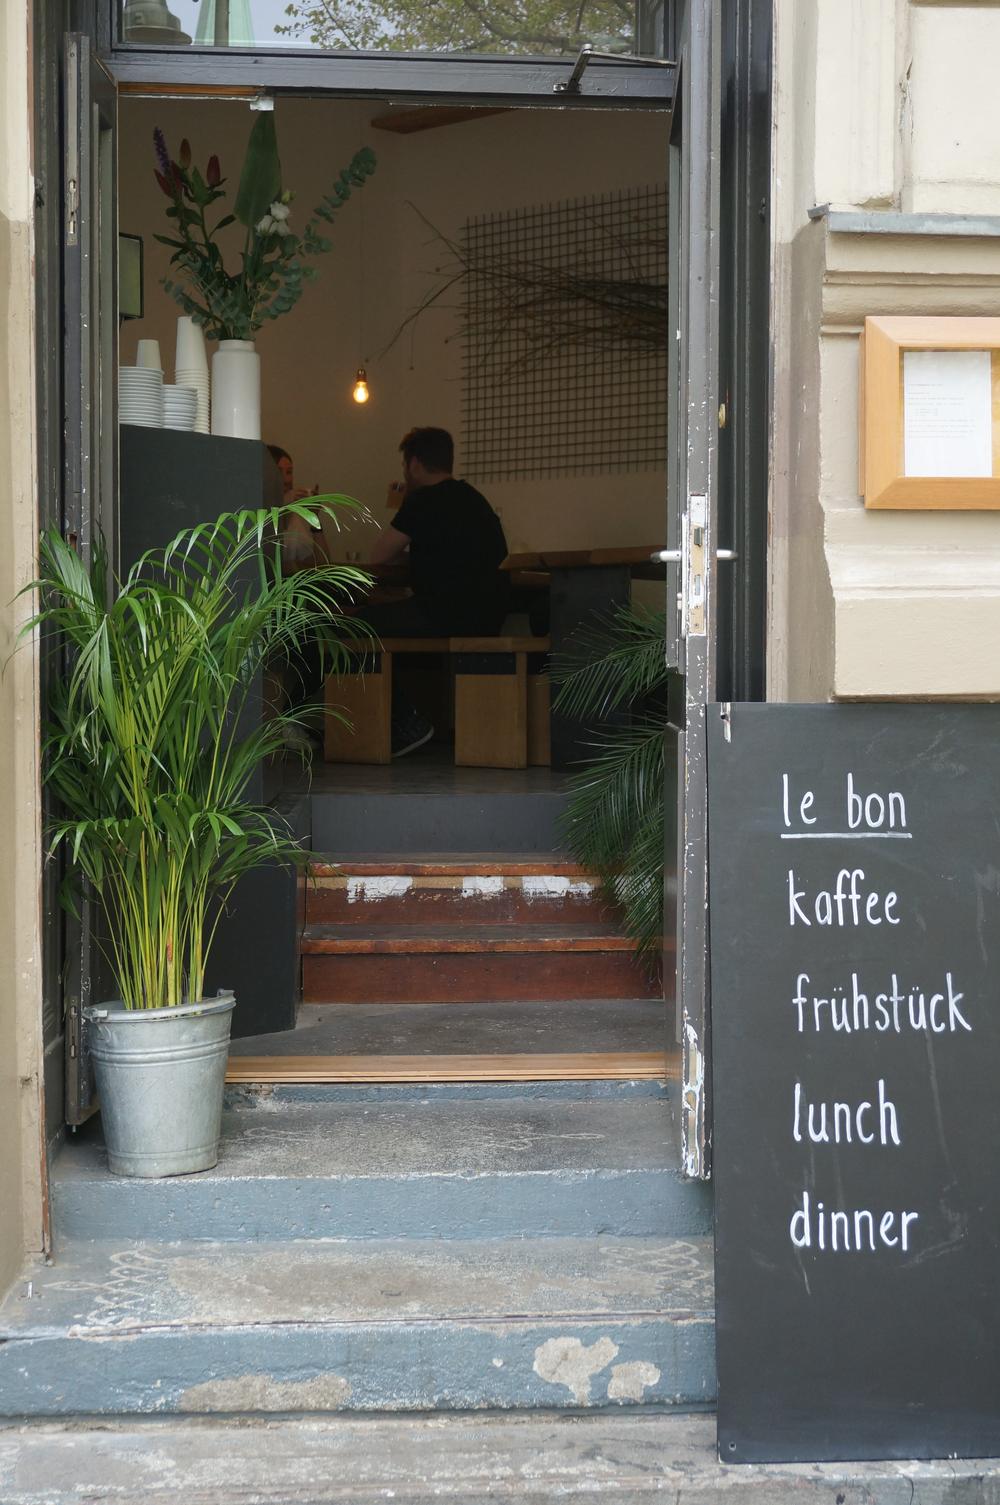 le bon
kaffee
frühstück
lunch
dinner